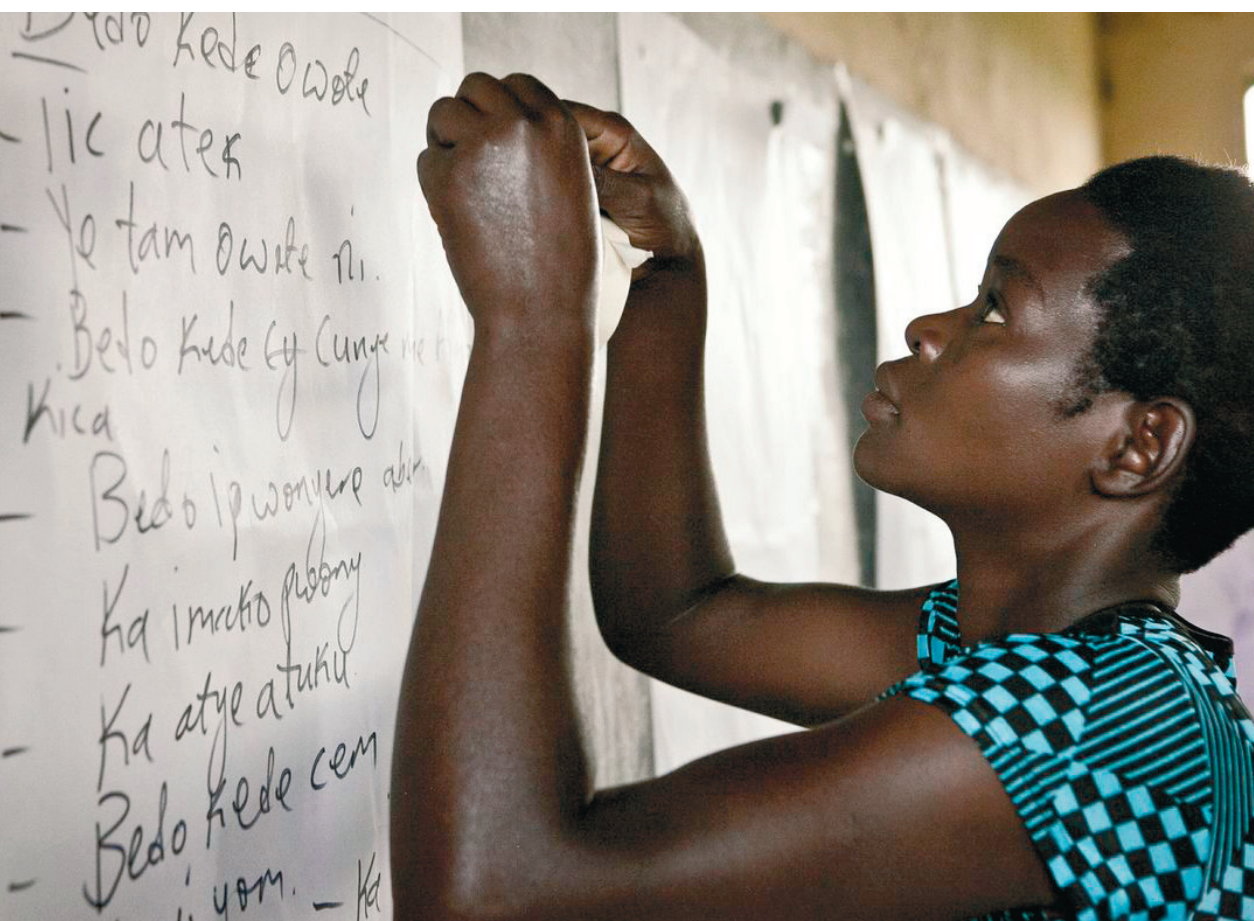 Bedo Kede Owote
- lic atek
- Ye tam Owote ni.
- Bedo Kede cy Cunye me
Kica
- Bedo ipwonyere aber.
- Ka imako pwony
- Ka atye atuku
- Bedo Kede cem
yom. - Ka